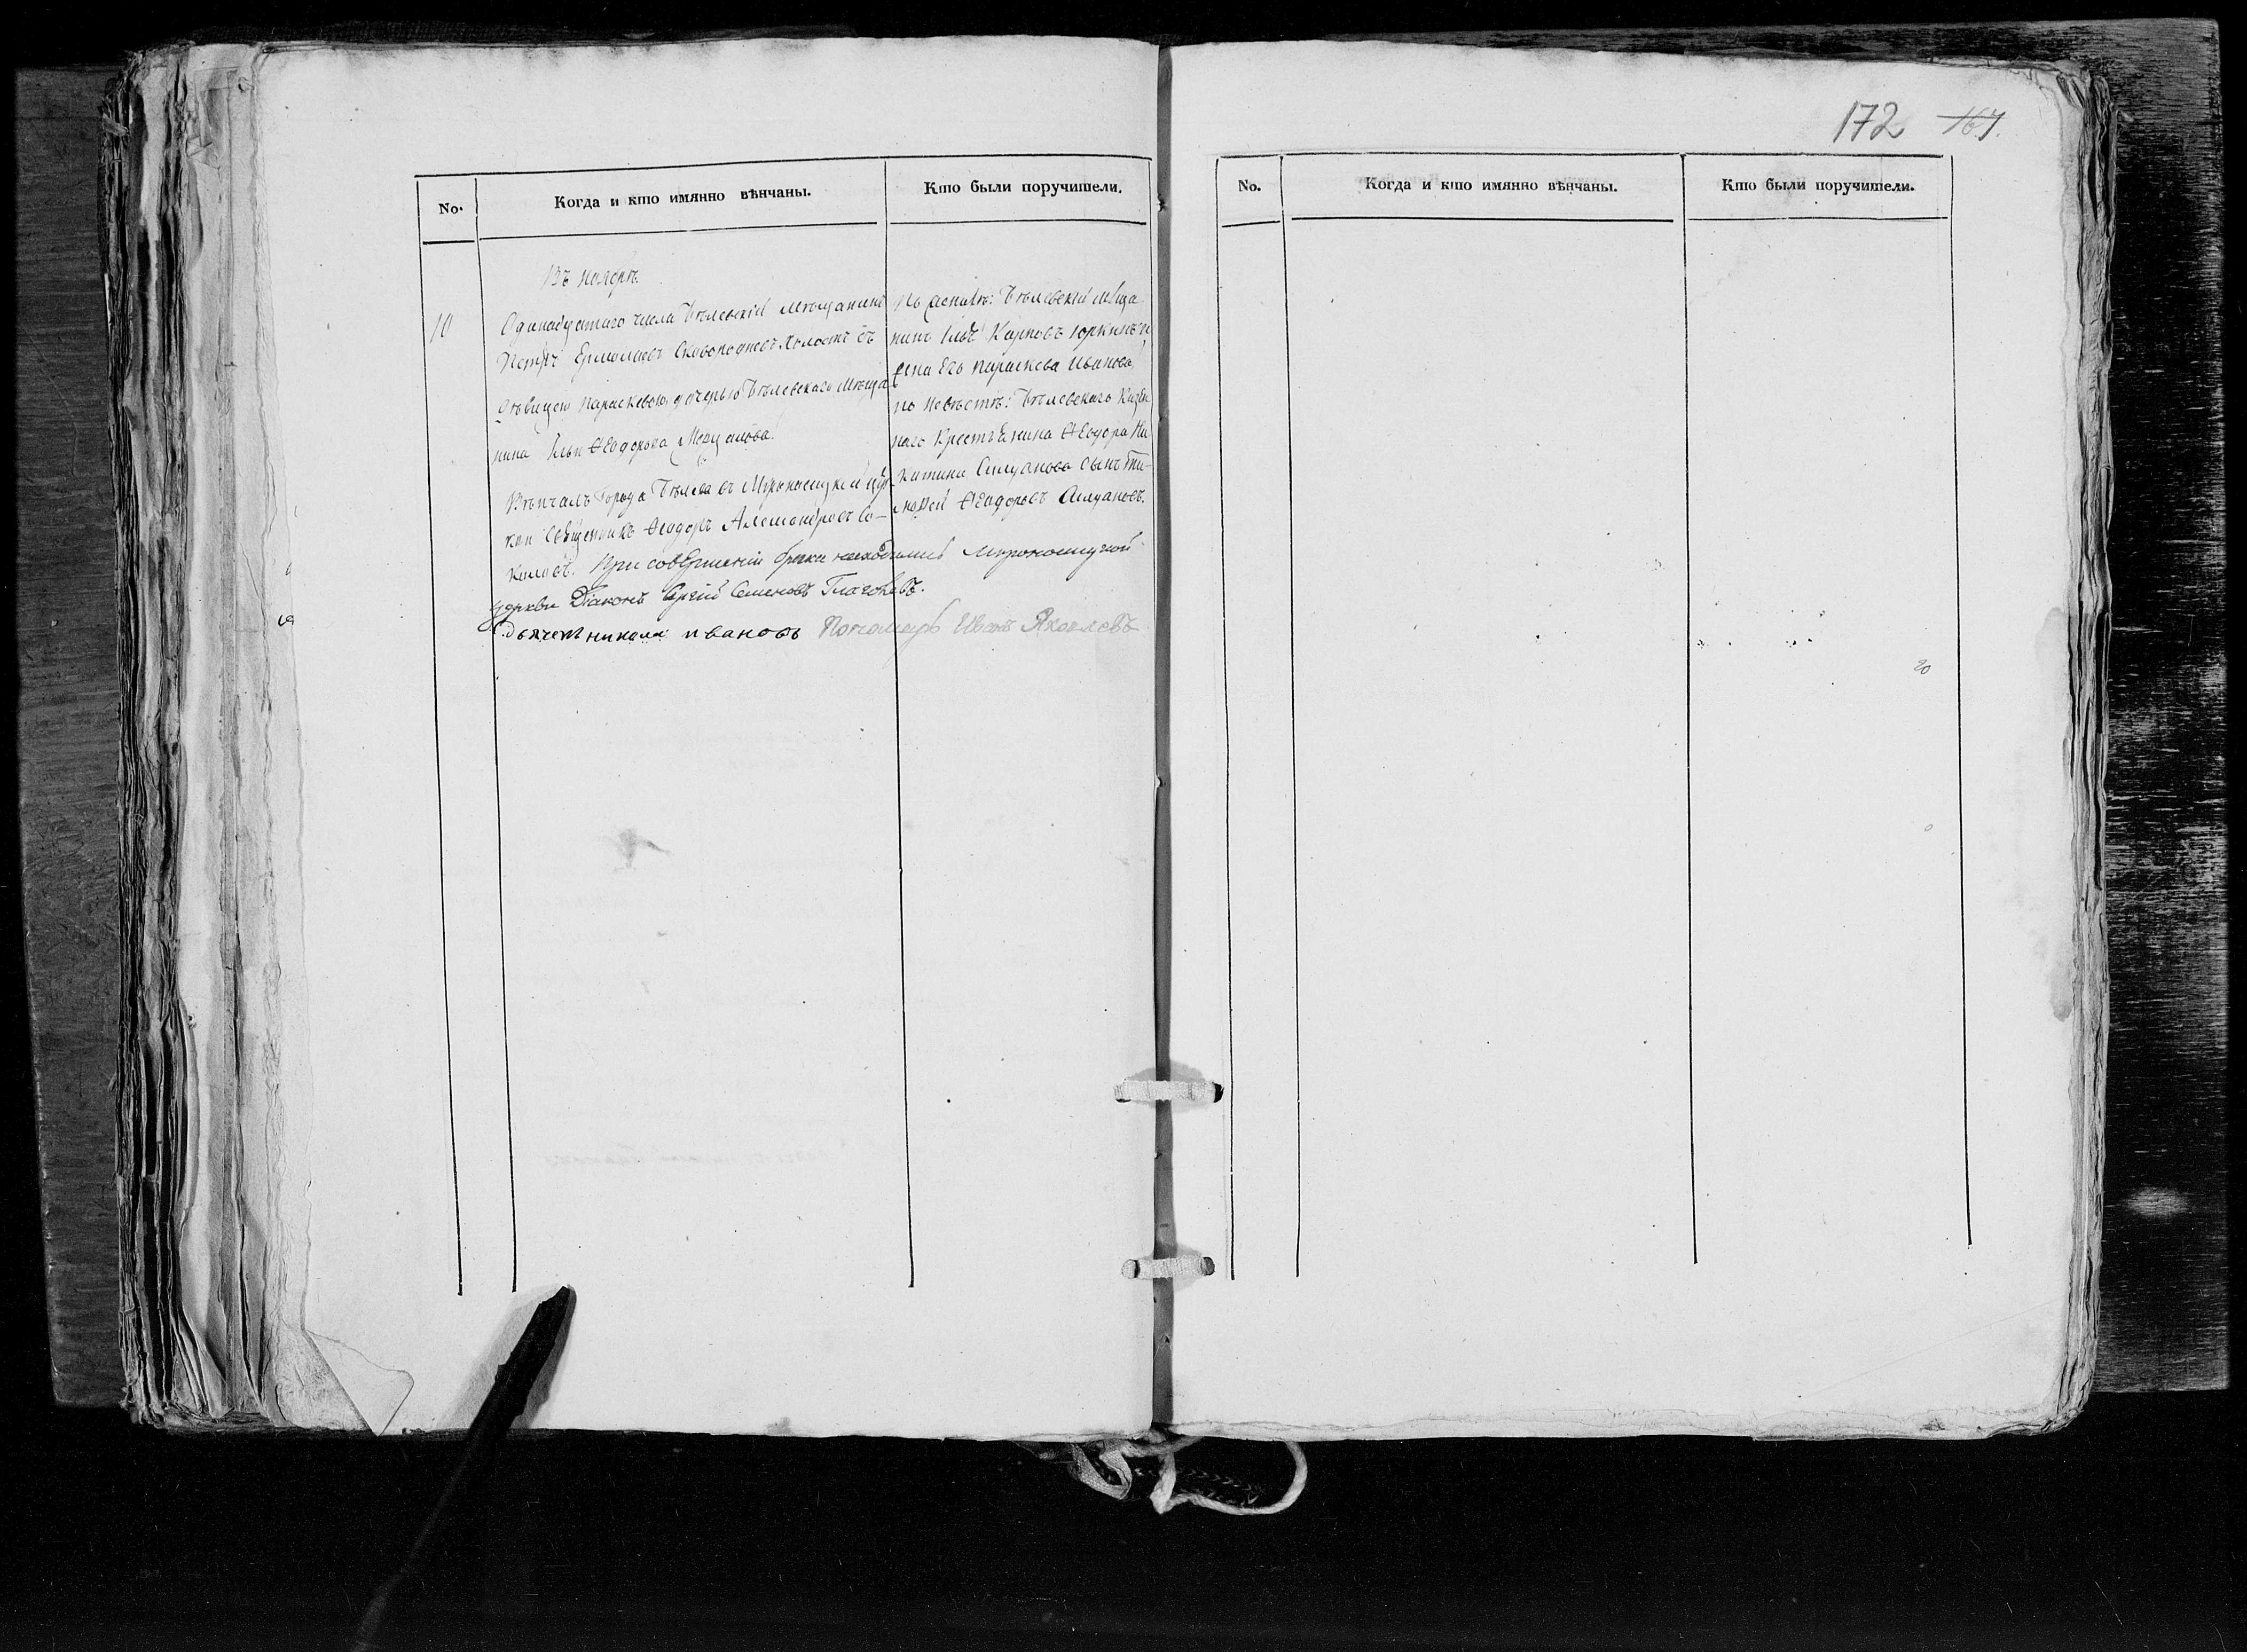 172 167.
No. Когда и кто имянно вѣнчаны. Кто были поручители.
Въ Ноябрѣ.
10 Одинадцатаго числа Бѣлевскій мѣщанинъ
Петръ Ермолаевъ Сковородневъ холостъ съ
дѣвицею Параскевою, дочерью Бѣлевскаго мѣща-
нина Ильи Ѳеодорова
Вѣнчалъ Города Бѣлева въ Мѵроносицкой цер-
кви Священникъ Ѳеодоръ Александровъ Со-
коловъ. При совершеніи брака находились Мѵроносицкой
церкви Діаконъ Сергій Семеновъ Глаголевъ.
Дьячекъ Никола Ивановъ Пономарь Иванъ Яковлевъ
По женихѣ: Бѣлевскій мѣща-
нинъ Карповъ Юркинъ и
жена Его Параскева Иванова,
по невѣстѣ: Бѣлевскаго Казен-
наго Крестьянина Ѳеодора Ни-
китина Силуанова сынъ Ти-
моѳей Ѳеодоровъ Силуановъ.
No. Когда и кто имянно вѣнчаны. Кто были поручители.